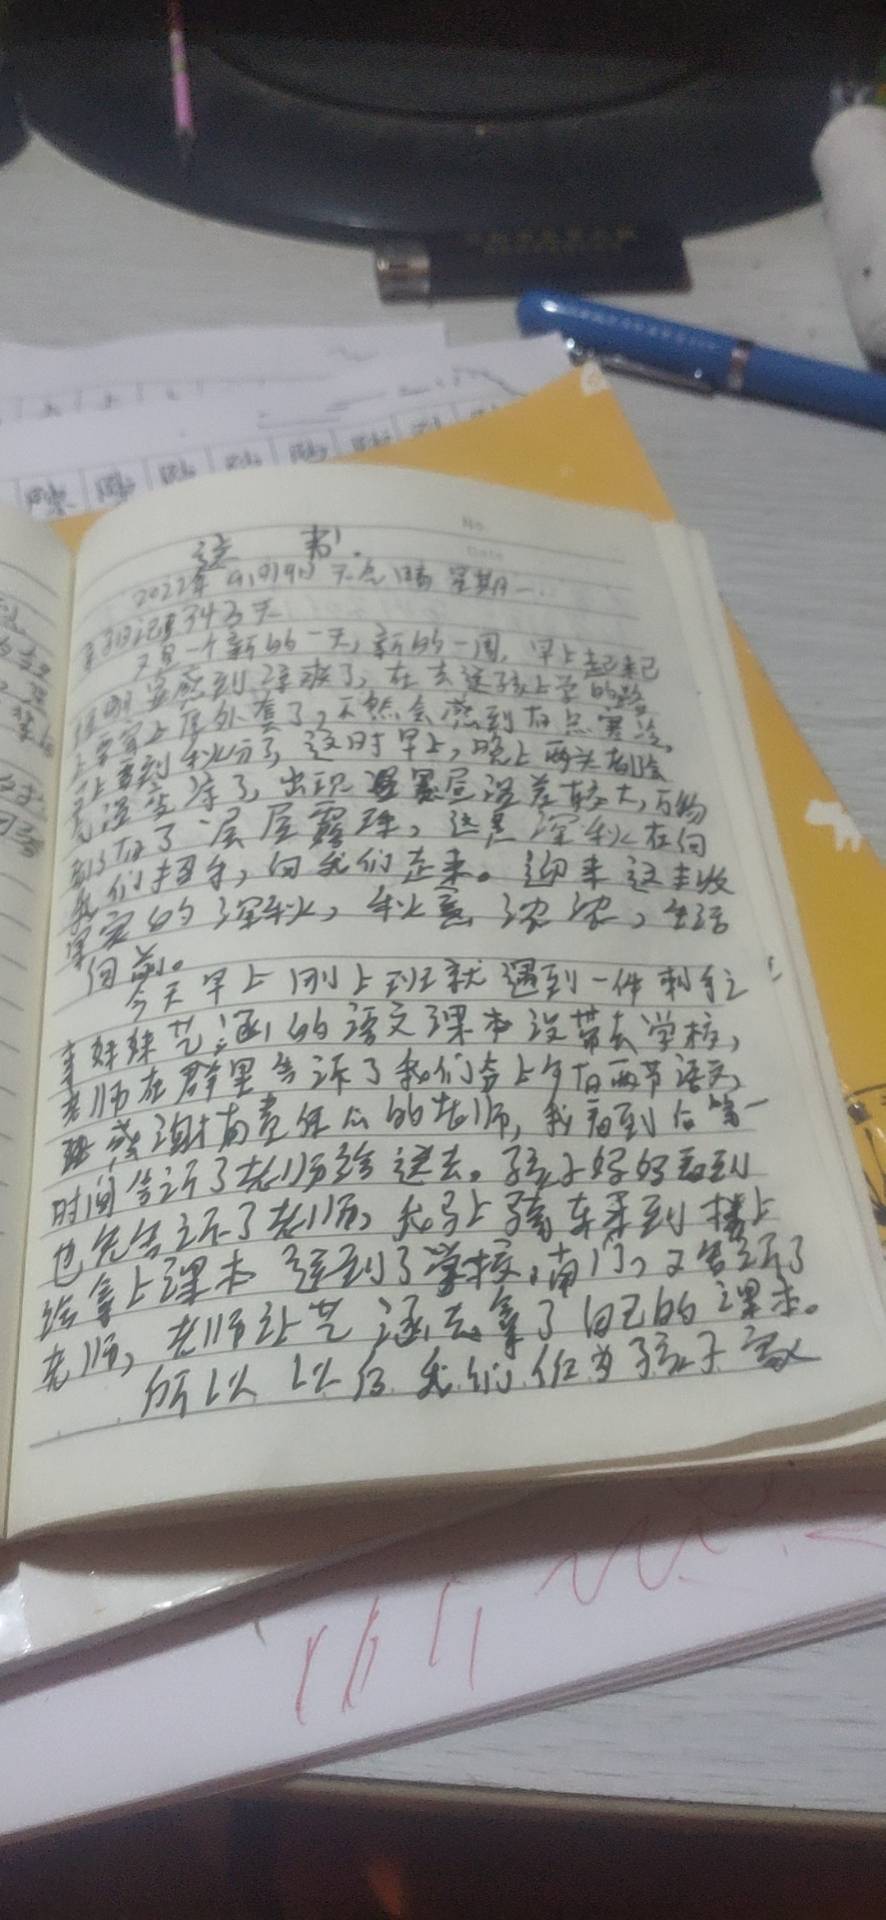 送 书.
No.
Date
2022年 9月19日 天气晴 星期一.
亲子日记第343天
又是一个新的一天,新的一周,早上起来已
经明显感到深秋了,在去送孩上学的路
上要穿上厚外套了,不然会感到有点寒冷,
马上要到秋分了,这时早上,晚上两头都会
气温变凉了,出现温差较大,万物
都有了一层层露珠,这是深秋在向
我们招手,向我们走来。迎来这丰收
的深秋,秋意浓浓,生活
向前。
今天早上刚上班就遇到一件
妹妹艺涵的语文课本没带去学校,
老师在群里告诉了我们今上午有两节语文,
感谢有责任心的老师,我看到后第一
时间告诉了老师给送去。孩子妈妈看到
也告诉了老师,我马上骑车来到楼上
给拿上课本送到了学校南门,又告诉了
老师,老师让艺涵去拿了自己的课本。
所以以后我们作为孩子家